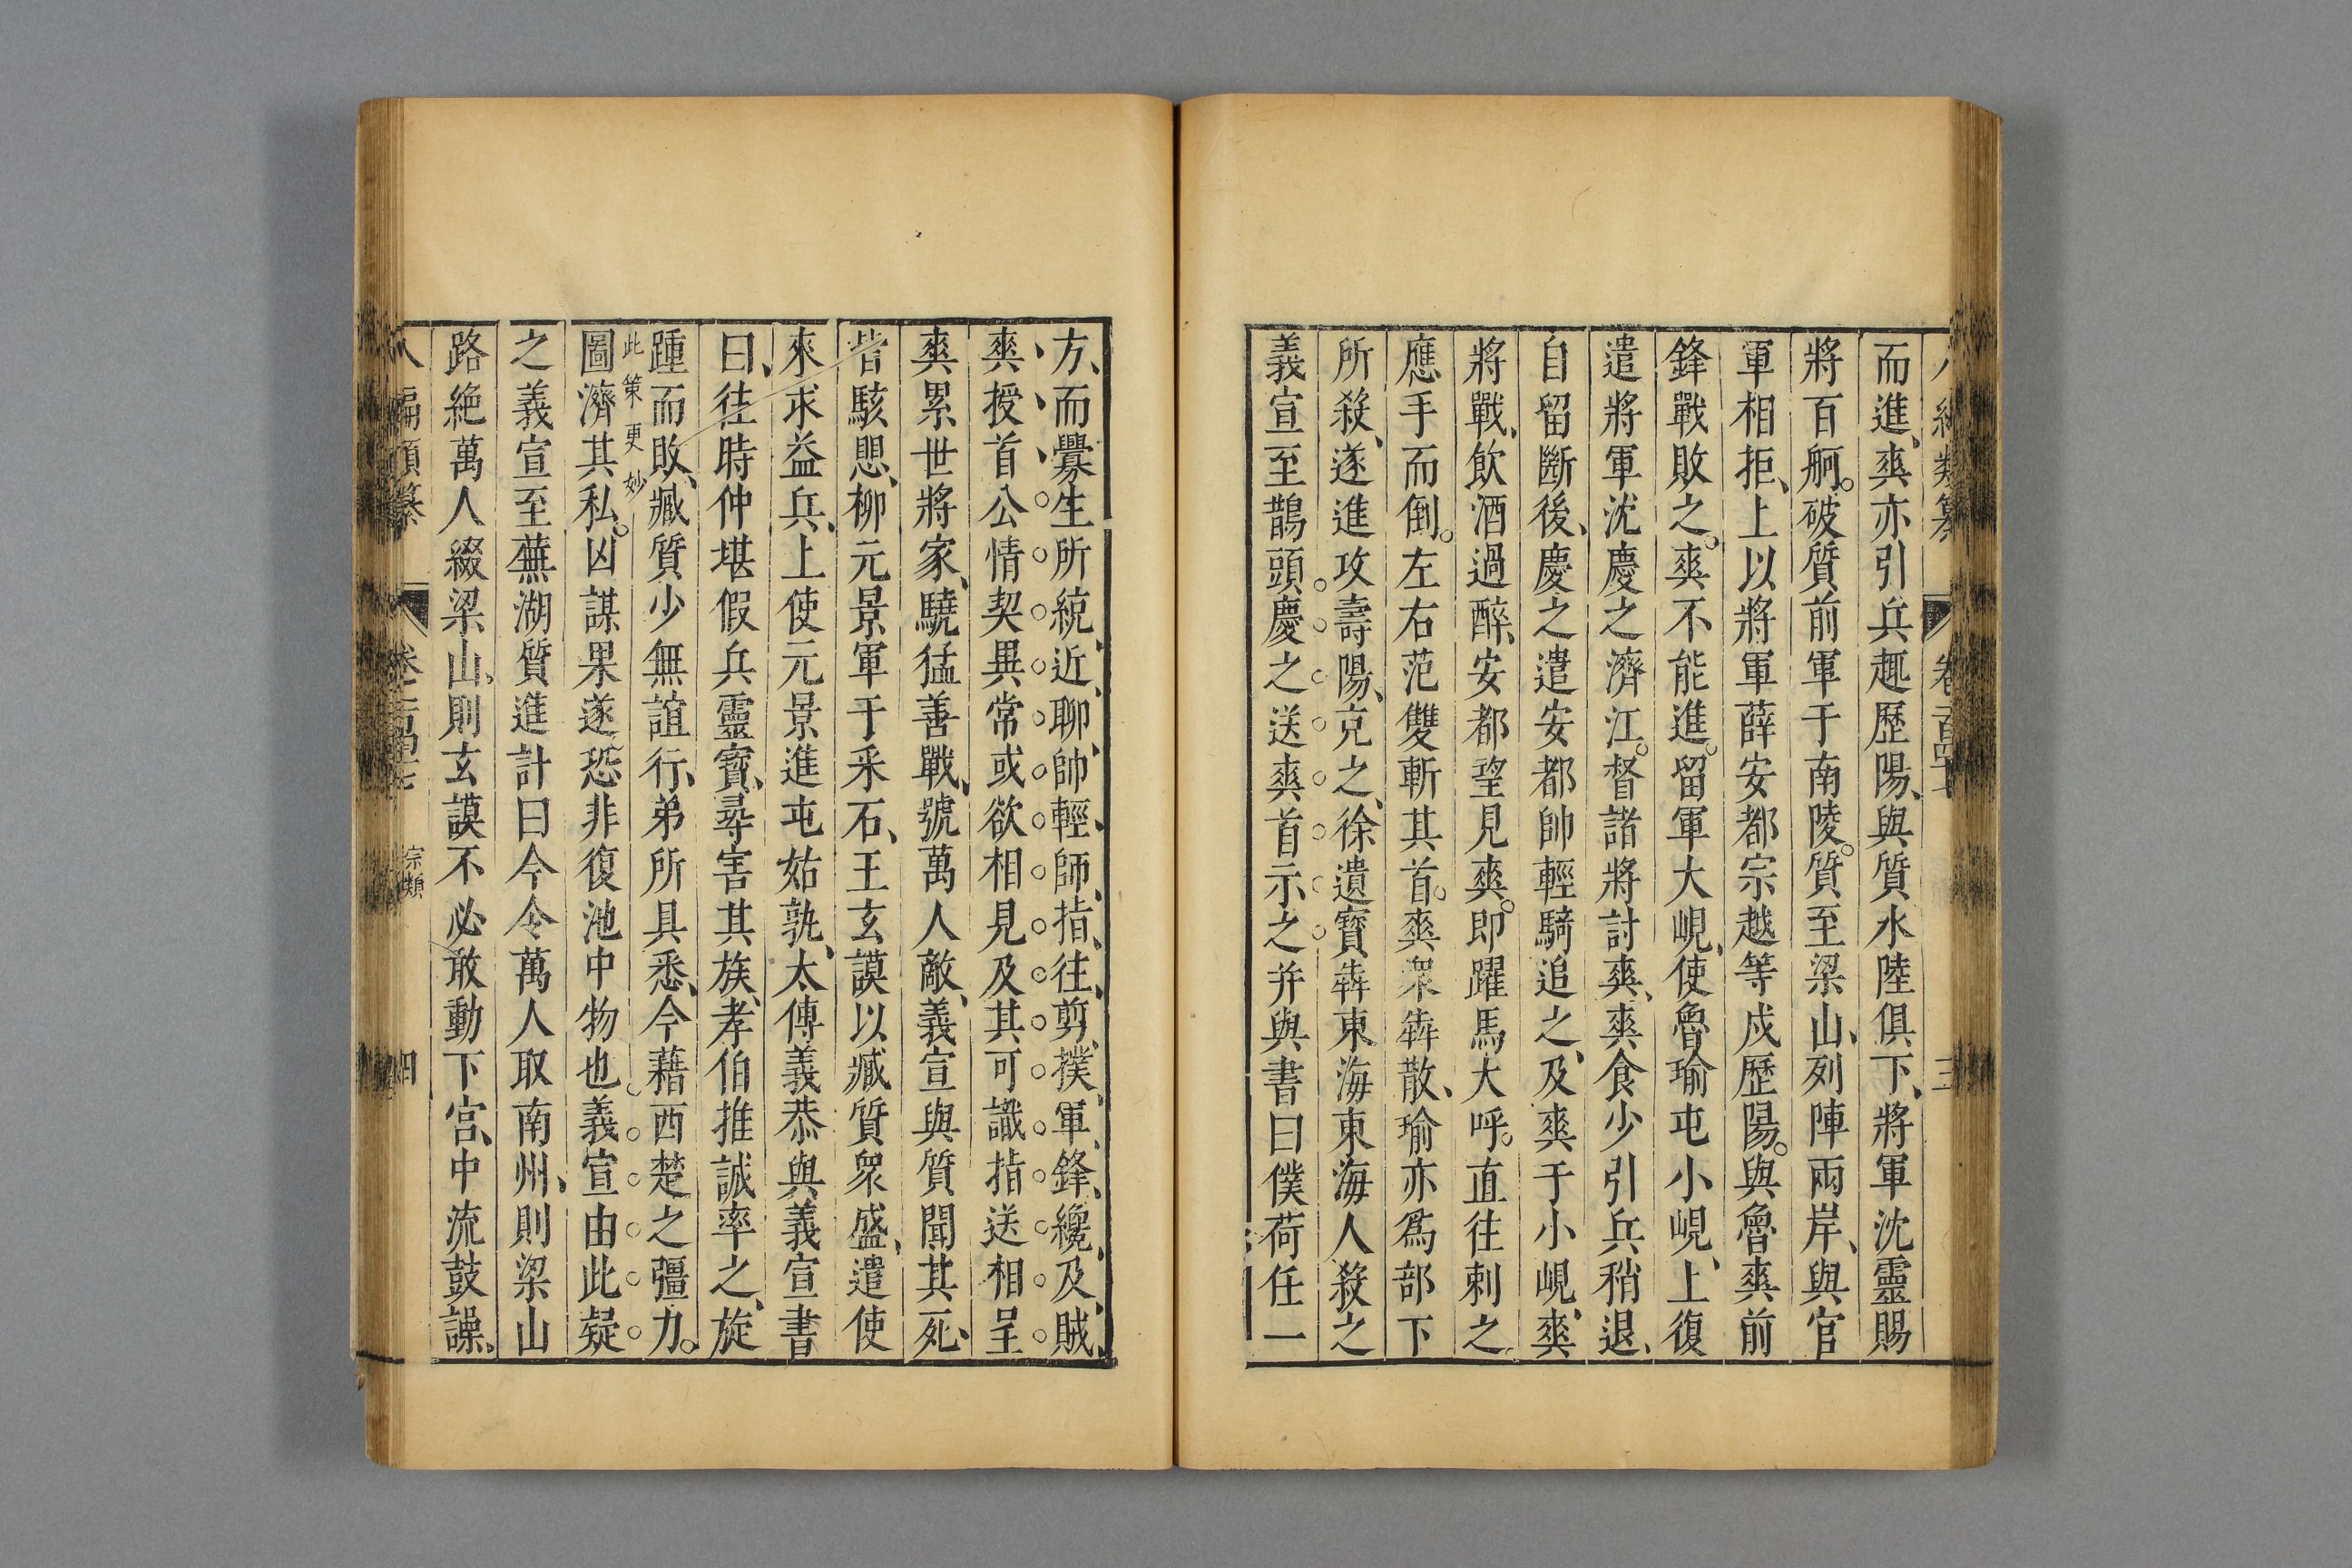 而進爽亦引兵趣歷陽與質水陸俱下將軍沈靈賜
將百舸破質前軍于南陵質至梁山列陣兩岸與官
軍相拒上以將軍薛安都宗越等戍歷陽與魯爽前
鋒戰敗之爽不能進留軍大峴使魯瑜屯小峴上復
遣將軍沈慶之濟江督諸將討爽爽食少引兵稍退
自留斷後慶之遣安都帥輕騎追之及爽于小峴爽
將戰飲酒過醉安都望見爽即躍馬大呼直往刺之
應手而倒左右范雙斬其首爽眾犇散瑜亦爲部下
所殺遂進攻壽陽克之徐遺寶犇東海東海人殺之
義宣至鵲頭慶之送爽首示之并與書曰僕荷任一
方而釁生所統近聊帥輕師指往剪撲軍鋒纔及賊
爽授首公情契異常或欲相見及其可識指送相呈
爽累世將家驍猛善戰號萬人敵義宣與質聞其死
皆駭思柳元景軍于采石王玄謨以臧質眾盛遣使
來求益兵上使元景進屯姑孰太傅義恭與義宣書
曰往時仲堪假兵靈寶尋害其族孝伯推誠牢之旋
踵而敗臧質少無誼行弟所具悉今藉西楚之彊力
此策更妙
圖濟其私凶謀果遂恐非復池中物也義宣由此疑
之義宣至蕪湖質進計曰今令萬人取南州則梁山
路絶萬人綴梁山則玄謨不必敢動下官中流鼓譟
八編類纂 卷一百四十七 宗類 四